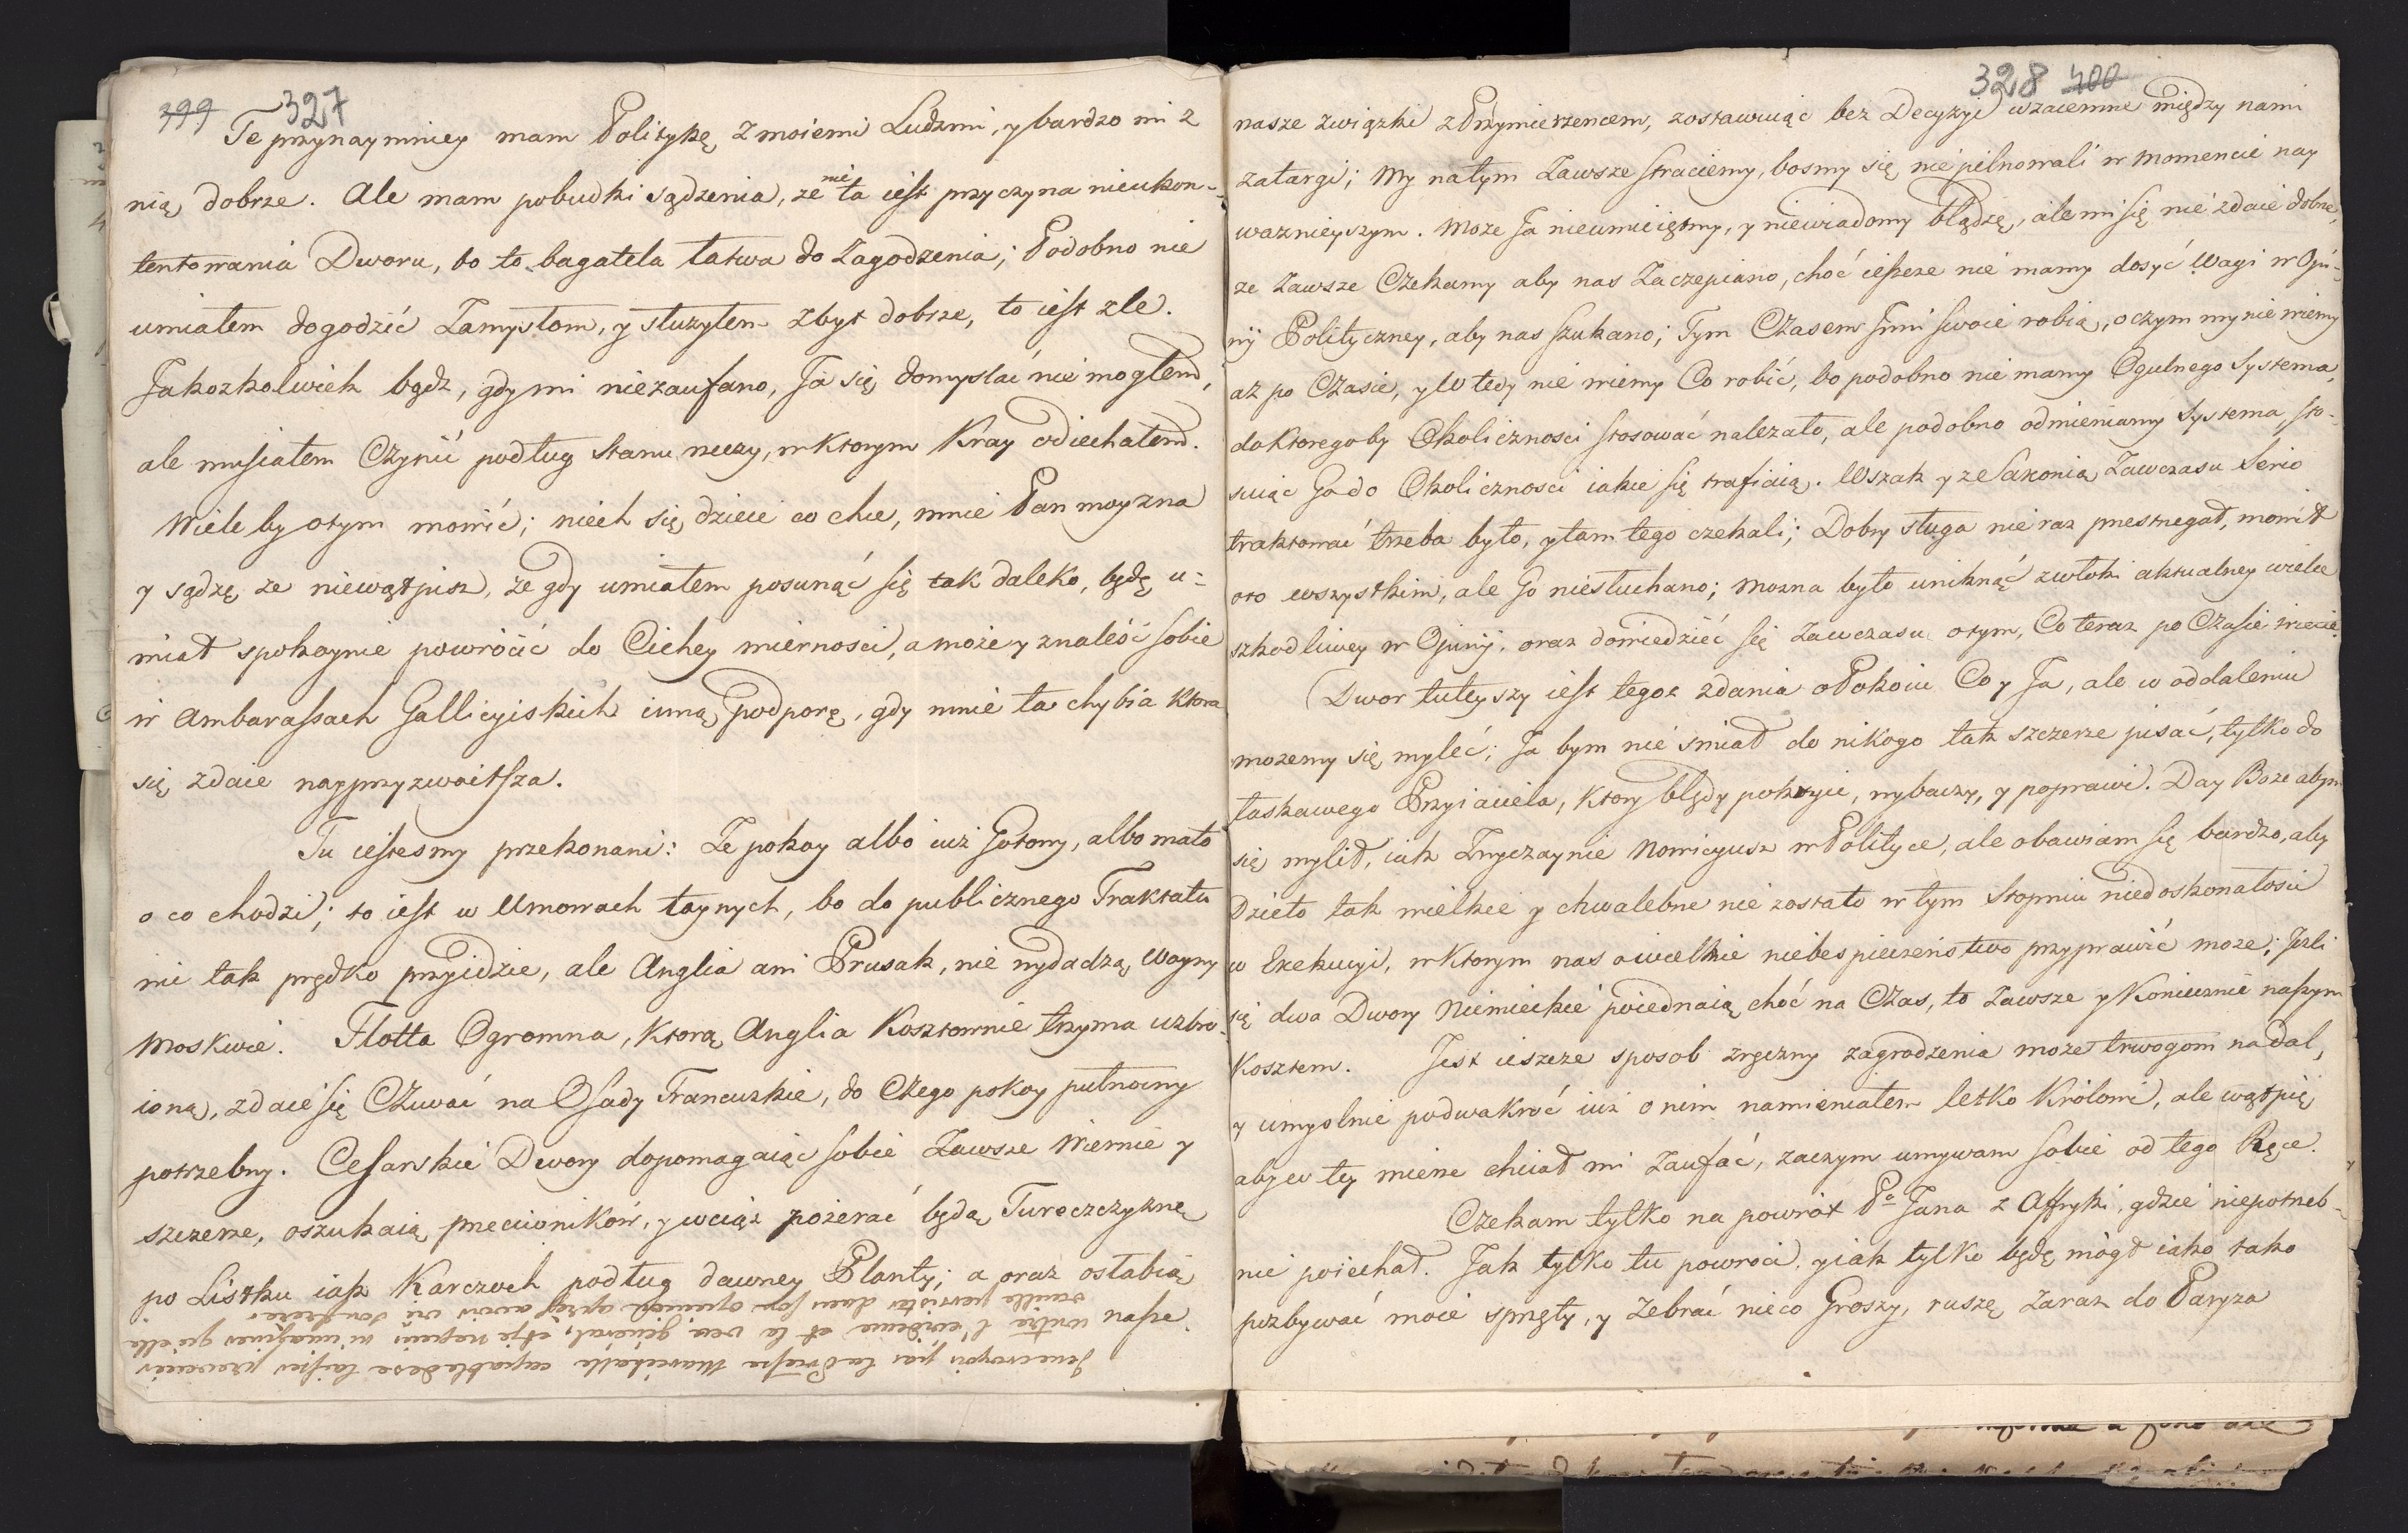 399 327
Te przynaymniey mam Politykę z moiemi Ludzmi, y bardzo mi z
nią dobrze. Ale mam pobudki sądzenia, ze nie ta iest przyczyna nieukon-
tentowania Dworu, bo to bagatela łatwa do Zagodzenia; Podobno nie
umiałem dogodzić Zamysłom, y służyłem zbyt dobrze, to iest zle.
Jakozkolwiek bądz, gdy mi niezaufano, Ja się domyslać nie mogłem,
ale musiałem Czynić podług stanu rzeczy, w ktorym Kray odiechałem.
Wiele by o tym mowić; niech się dzieie co chce, mnie Pan moy zna
y sądzę ze niewątpisz, ze gdy umiałem posunąć się tak daleko, będę u-
miał spokoynie powrócić do Cichey miernosci, a może y znaleść sobie
w Ambarassach Gallicyiskich inną podporę, gdy mnie ta chybia ktora
się zdaie nayprzyzwoitsza.
Tu iestesmy przekonani: Ze pokoy albo iuż Gotowy, albo mało
o co chodzi; to iest w Umowach taynych, bo do publicznego Traktatu
nie tak prędko przyidzie, ale Anglia ani Prusak, nie wydadzą Woyny
Moskwie. Flotta Ogromna, ktorą Anglia Kosztownie trzyma uzbro-
ioną, zdaie się Czuwać na Osady Francuzkie, do Czego pokoy pułnocny
potrzebny. Cesarskie Dwory dopomagaiąc sobie Zawsze Wiernie y
szczerze, oszukaią przeciwników, y wciąż pożerać będą Tureczczyznę
po Listku iak Karczoch podług dawney Planty; a oraz osłabią
nasze
328 400
nasze związki z Przymierzencem, zostawuiąc bez Decyzyi wzaiemne między nami
zatargi; My na tym Zawsze straciemy, bosmy się nie pilnowali w momencie nay
wazniejszym. Może Ja nieumieiętny, y niewiadomy błądzę, ale mi się nie zdaie dobrze,
ze Zawsze Czekamy aby nas Zaczepiano, choć ieszcze nie mamy dosyć Wagi w Opi-
nij Polityczney, aby nas szukano; Tym Czasem Inni swoie robią, o czym my nie wiemy
aż po Czasie, y W tedy nie wiemy Co robić, bo podobno nie mamy Ogulnego Systema,
do ktoregoby Okolicznosci stosować należało, ale podobno odmieniamy Systema, sto-
suiąc Go do Okolicznosci iakie się trafiaią. Wszak y ze Saxonią Zawczasu Serio
traktować trzeba było, y tam tego czekali; Dobry sługa nie raz przestrzegał, mowił
oto wszystkim, ale Go niesłuchano; mozna było uniknąć zwłoki aktualney wielce
szkodliwey w Opinij, oraz dowiedzieć się Zawczasu o tym, Co teraz po Czasie wiecie.
Dwor tuteyszy iest tegoz zdania o Pokoiu Co y Ja, ale w oddaleniu
możemy się myleć; Ja bym nie smiał do nikogo tak szczerze pisać, tylko do
łaskawego Przyiaciela, ktory błędy pokryie, wybaczy, y poprawi. Day Boze abym
się mylił, iak Zwyczaynie Nowicyusz w Polityce, ale obawiam się bardzo, aby
Dzieło tak wielkie y chwalebne nie zostało w tym stopniu niedoskonałosci
w Exekucyi, w ktorym nas o wielkie niebespieczeństwo przyprawić moze; Jezli
się dwa Dwory Niemieckie poiednaią choć na Czas, to Zawsze y Koniecznie naszym
Kosztem. Jest ieszcze sposob zręczny zagrodzenia może trwogom nadal,
y umyslnie podwakroć iuż o nim namieniałem letko Królowi, ale wątpię
aby w tey mierze chciał mi Zaufać, zaczym umywam sobie od tego Ręce.
Czekam tylko na powrót Pa Jana z Affryki, gdzie niepotrzeb-
nie poiechał. Jak tylko tu powroci, y iak tylko będę mógł iako tako
pozbywać moie sprzęty, y Zebrać nieco Groszy, ruszę Zaraz do Paryza